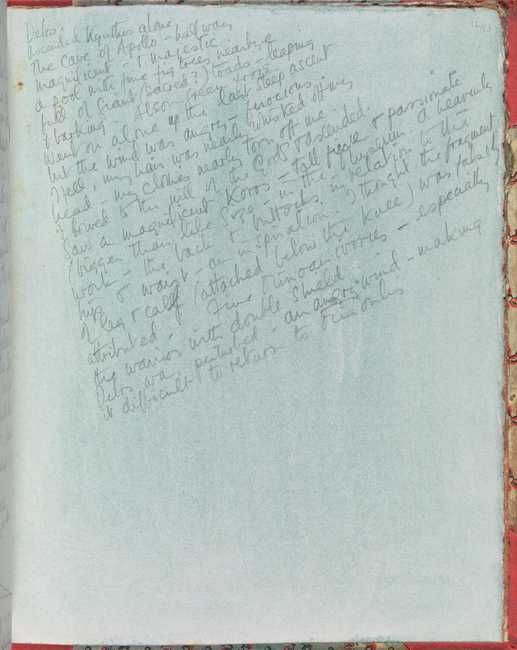 Delos.
Ascended Kynthus alone,
The cave of Apollo - half way,
magnificent & majestic.
a pool with fine fig trees nearby
full of giant (sacred?) toads - leaping
& barking. Also green frogs.
Went on alone up the last steep ascent
but the wind was angry - ferocious.
I fell, my hair was nearly whisked off my
head - my clothes nearly torn off me.
I bowed to the will of the Gods & descended.
Saw a magnificent Koros - tall fierce & passionate
(bigger than life size) in the Museum. A heavenly
work - the back & buttocks in relation to the
hip & waist - an inspiration. I thought the fragment
of leg & calf (attached below the knee) was falsely
attributed. Fine Minoan ivories - especially
the warrior with double shield.
Delos was perturbed - an angry wind - making
it difficult to return to